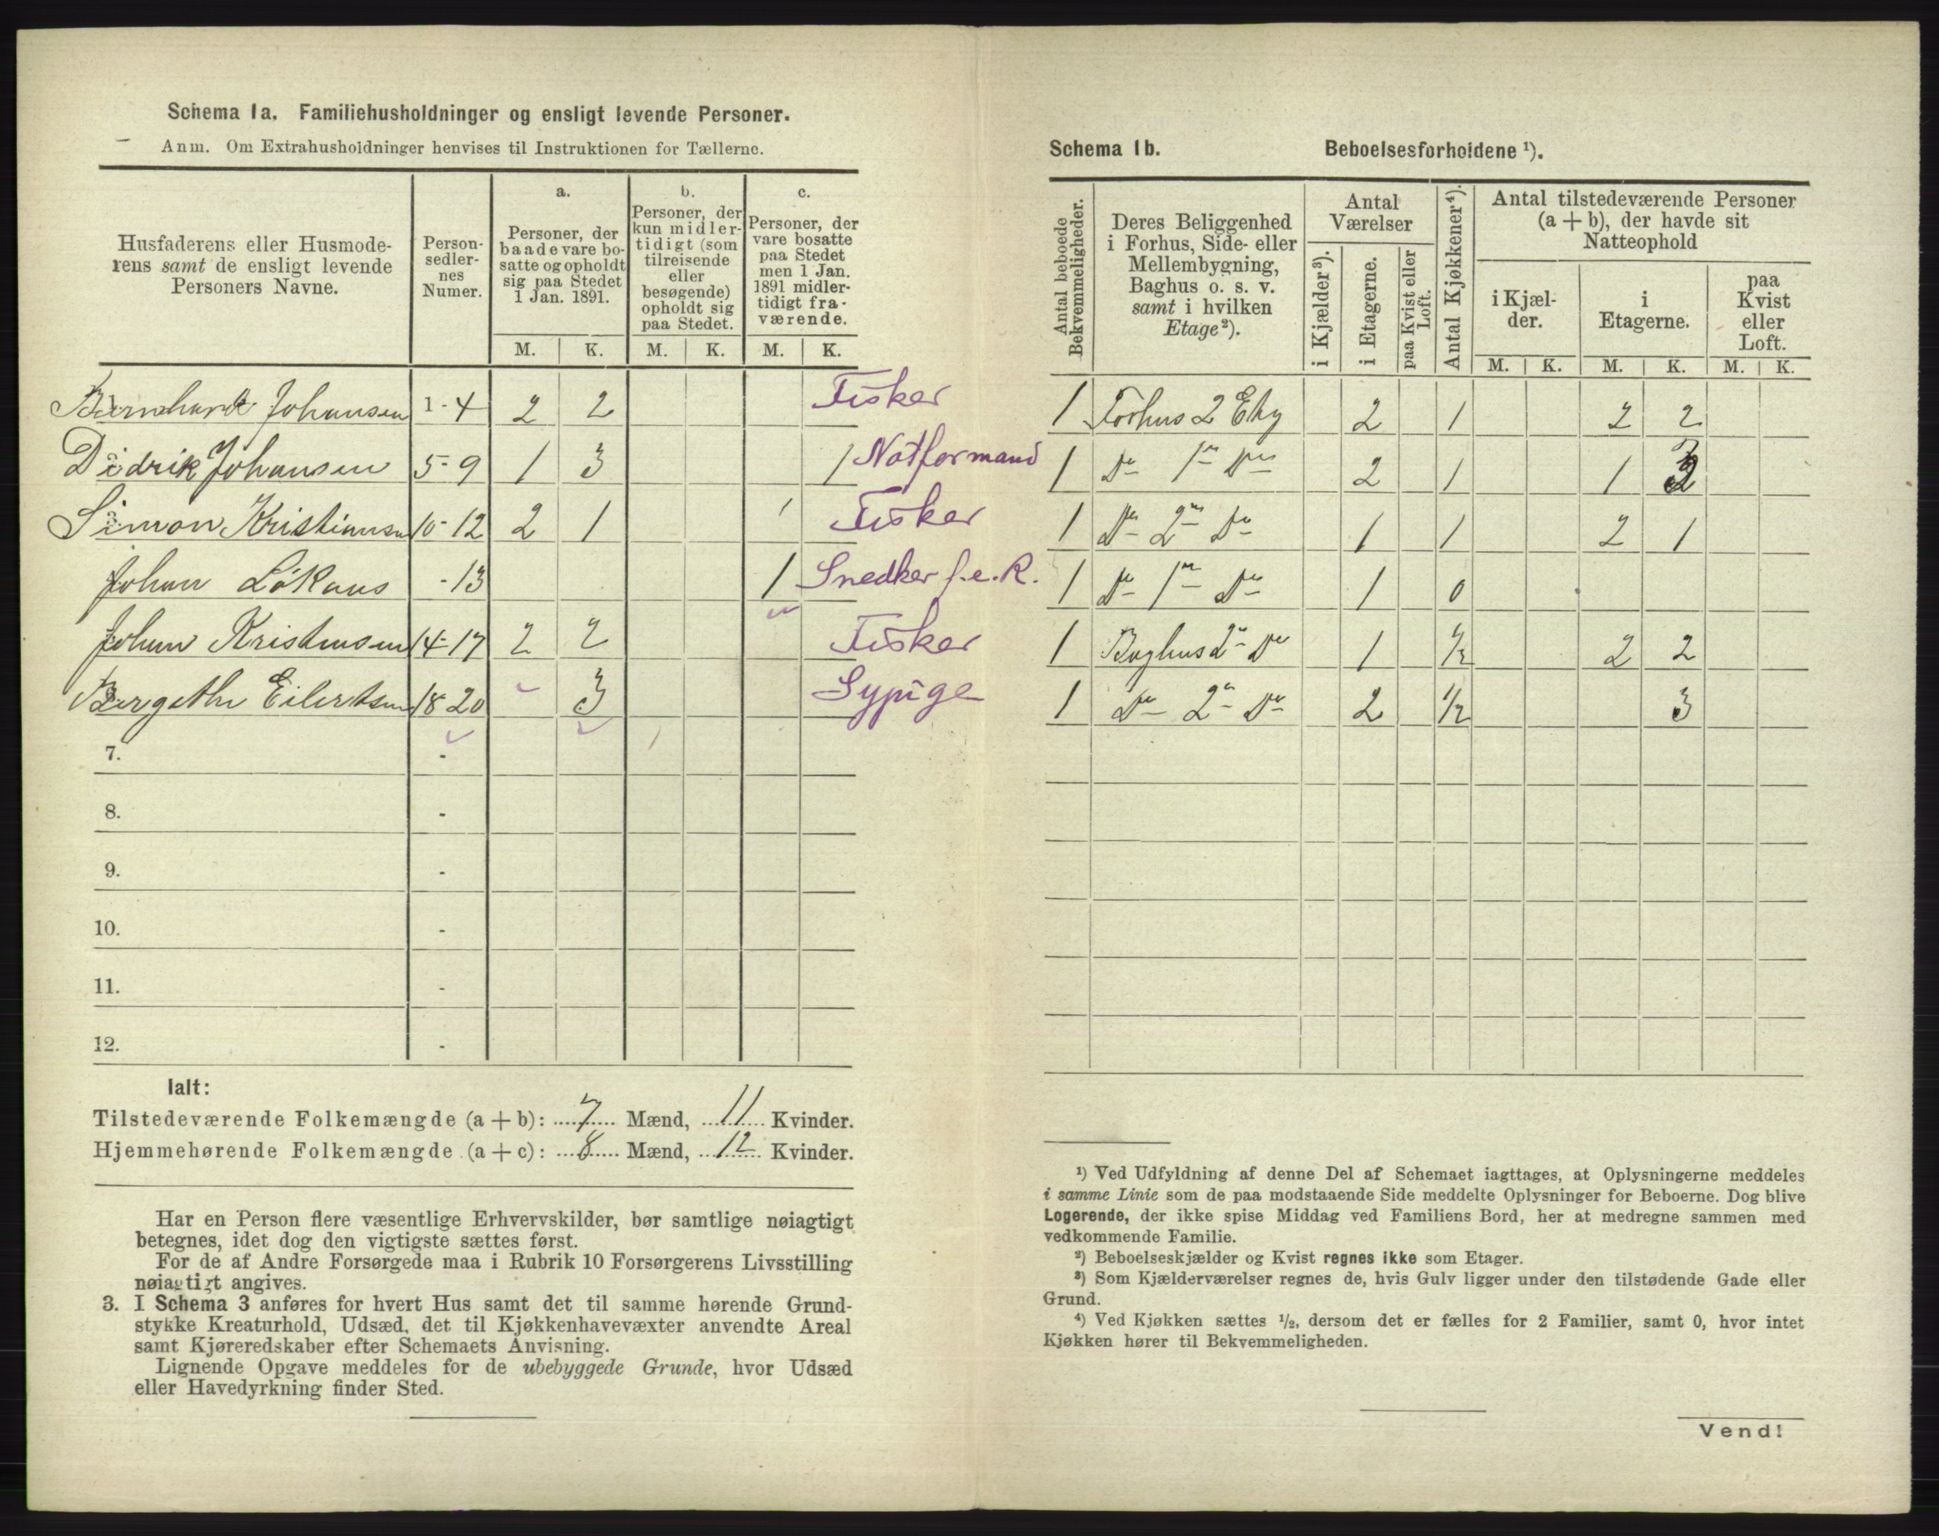 Schema 1a. Familiehusholdninger og ensligt levende Personer.
Anm. Om Extrahusholdninger henvises til Instruktionen for Tællerne.
Husfaderens eller Husmoderens samt de ensligt levende Personers Navne.
Person-
sedler-
nes
Numer.
a.
Personer, der
baade vare bo-
satte og opholdt
sig paa Stedet
1 Jan. 1891.
b.
Personer, der
kun midler-
tidigt (som
tilreisende
eller
besøgende)
opholdt sig
paa Stedet.
c.
Personer, der
vare bosatte
paa Stedet
men 1 Jan.
1891 midler-
tidigt fra-
værende.
M. K. M. K. M. K.
Bernhard Johansen 1-4 2 2 Fisker
Didrik Johansen 5-9 1 3 1 Notformand
Simon Kristiansen 10-12 2 1 1 Fisker
Johan Lökaas -13 1 Snedker f.e.R.
Johan Kristiansen 14-17 2 2 Fisker
Bergethe Eilertsen 18-20 3 Sypige
7. -
8. -
9. -
10. -
11. -
12. -
Ialt:
Tilstedeværende Folkemængde (a + b): 7 Mænd, 11 Kvinder.
Hjemmehørende Folkemængde (a + c): 8 Mænd, 12 Kvinder.
Har en Person flere væsentlige Erhvervskilder, bør samtlige nøiagtigt
betegnes, idet dog den vigtigste sættes først.
For de af Andre Forsørgede maa i Rubrik 10 Forsørgerens Livsstilling
nøiagtigt angives.
3. I Schema 3 anføres for hvert Hus samt det til samme hørende Grund-
stykke Kreaturhold, Udsæd, det til Kjøkkenhavevæxter anvendte Areal
samt Kjøreredskaber efter Schemaets Anvisning.
Lignende Opgave meddeles for de ubebyggede Grunde, hvor Udsæd
eller Havedyrkning finder Sted.
Schema 1b. Beboelsesforholdene ¹).
Antal beboede
Bekvemmeligheder.
Deres Beliggenhed
i Forhus, Side- eller
Mellembygning,
Baghus o. s. v.
samt i hvilken
Etage²).
Antal
Værelser
i Kjælder³).
i Etagerne.
paa Kvist eller
Loft.
Antal Kjøkkener⁴).
Antal tilstedeværende Personer
(a + b), der havde sit
Natteophold
i Kjæl-
der.
i
Etagerne.
paa
Kvist
eller
Loft.
M. K. M. K. M. K.
1 Forhus 2 Etg 2 1 2 2
1 Do 1ste Do 2 1 1 3
1 Do 2n Do 1 1 2 1
1 Do 1n Do 1 0
1 Baghus 2n Do 1 1/2 2 2
1 Do 2n Do 2 1/2 3
¹) Ved Udfyldning af denne Del af Schemaet iagttages, at Oplysningerne meddeles
i samme Linie som de paa modstaaende Side meddelte Oplysninger for Beboerne. Dog blive
Logerende, der ikke spise Middag ved Familiens Bord, her at medregne sammen med
vedkommende Familie.
²) Beboelseskjælder og Kvist regnes ikke som Etager.
³) Som Kjælderværelser regnes de, hvis Gulv ligger under den tilstødende Gade eller
Grund.
⁴) Ved Kjøkken sættes ½, dersom det er fælles for 2 Familier, samt 0, hvor intet
Kjøkken hører til Bekvemmeligheden.
Vend!